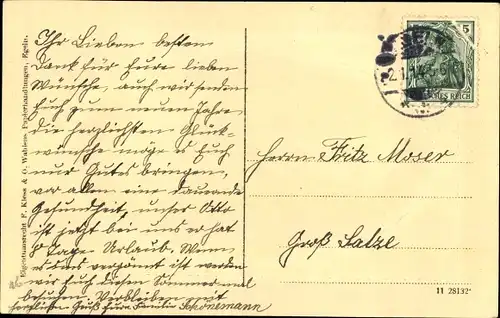 Ihr Lieben besten
Dank für Eure lieben
Wünsche, auch wir senden
Euch zum neuen Jahre
die herzlichsten Glück-
wünsche möge es Euch
nur Gutes bringen,
vor allen eine dauernde
Gesundheit, unser Otto
ist jetzt bei uns er hat
8 Tage Urlaub. Wenn
es uns vergönt ist werden
wir Euch diesen Sommer mal
besuchen Verbleiben mit
herzlichen Gruß Eure Familie Schönemann
Herrn Fritz Moser
Groß Salze
5
REICH
Eigentumsrecht F. Klese & O. Wählens Papierhandlungen, Egeln.
11 28132*